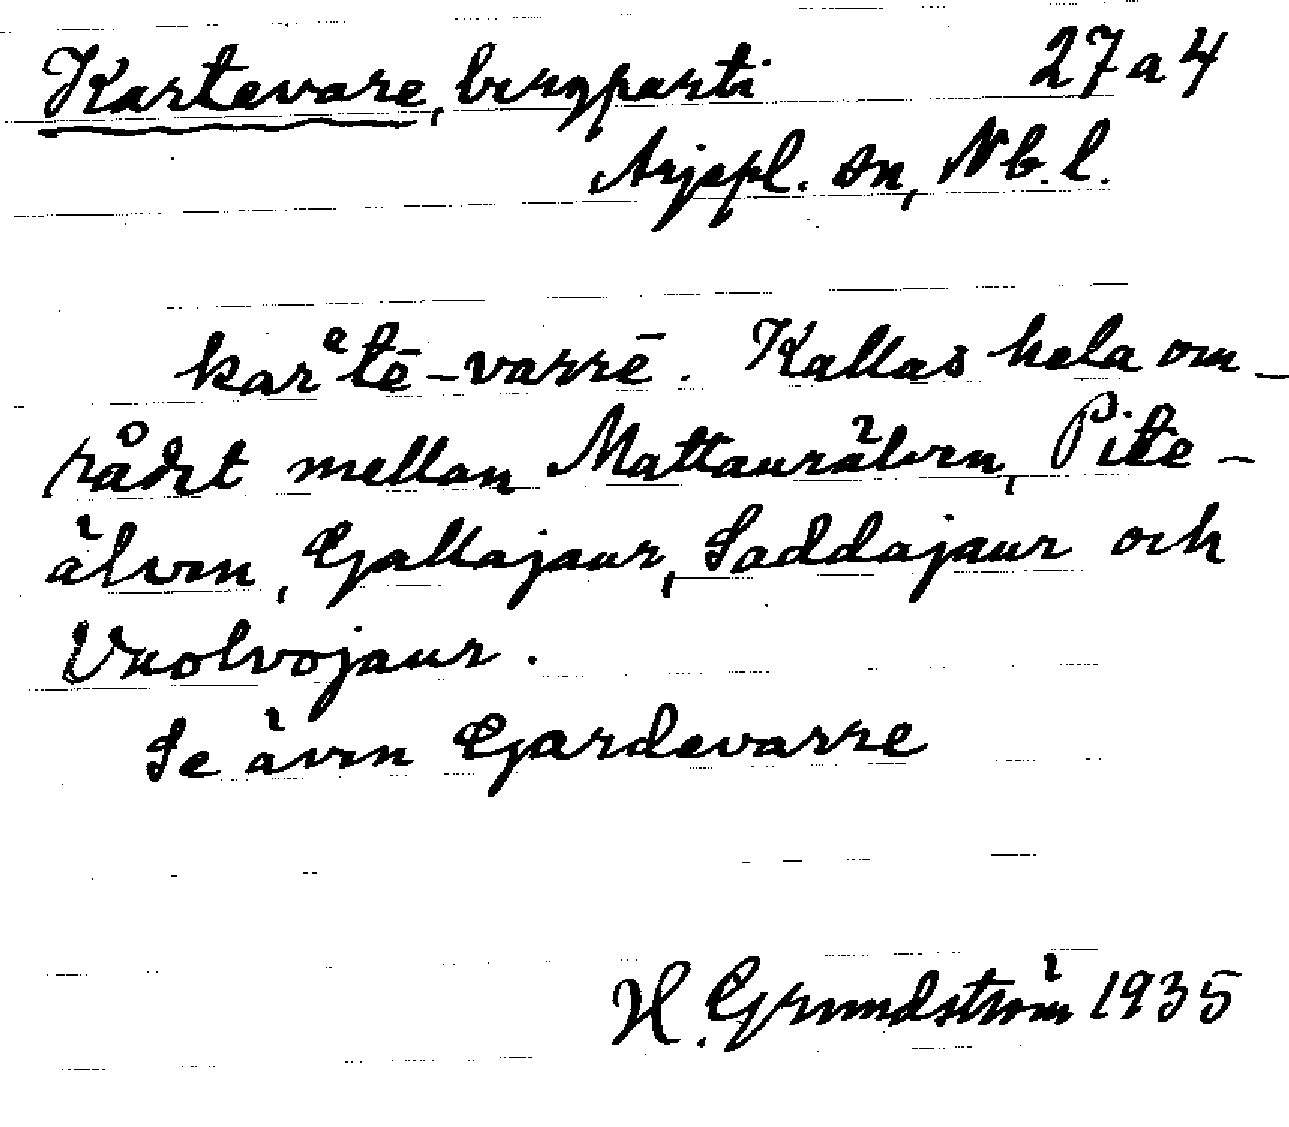 Kartevare, bergparti 27a4
Arjepl. sn, Nb. l.
karᵉtē-varrē. Kallas hela om-
rådet mellan Mattaurälven, Pite-
älven, Gallajaur, Saddajaur och
Vuolvojaur.
Se även Gardevarre
H. Grundström 1935